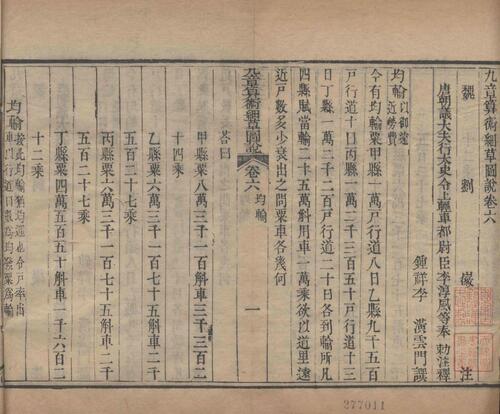 九章算術細草圖說卷六
魏 劉 徽 注
唐朝議大夫行太史令上輕車都尉臣李淳風等奉 勅注釋
鍾祥李 潢雲門譔
均輸以御遠近勞費
今有均輸粟甲縣一萬戶行道八日乙縣九千五百
戶行道十日丙縣一萬二千三百五十戶行道十三
日丁縣一萬二千二百戶行道二十日各到輸所凡
四縣賦當輸二十五萬斛用車一萬乘欲以道里遠
近戶數多少衰出之問粟車各幾何
九章算術細草圖說 卷六 均輸 一
答曰
甲縣粟八萬三千一百斛車三千三百二
十四乘
乙縣粟六萬三千一百七十五斛車二千
五百二十七乘
丙縣粟六萬三千一百七十五斛車二千
五百二十七乘
丁縣粟四萬五百五十斛車一千六百二
十二乘
均輸按此均輸猶均運也令戶率出
車以行道日數為均發粟為輸
277011